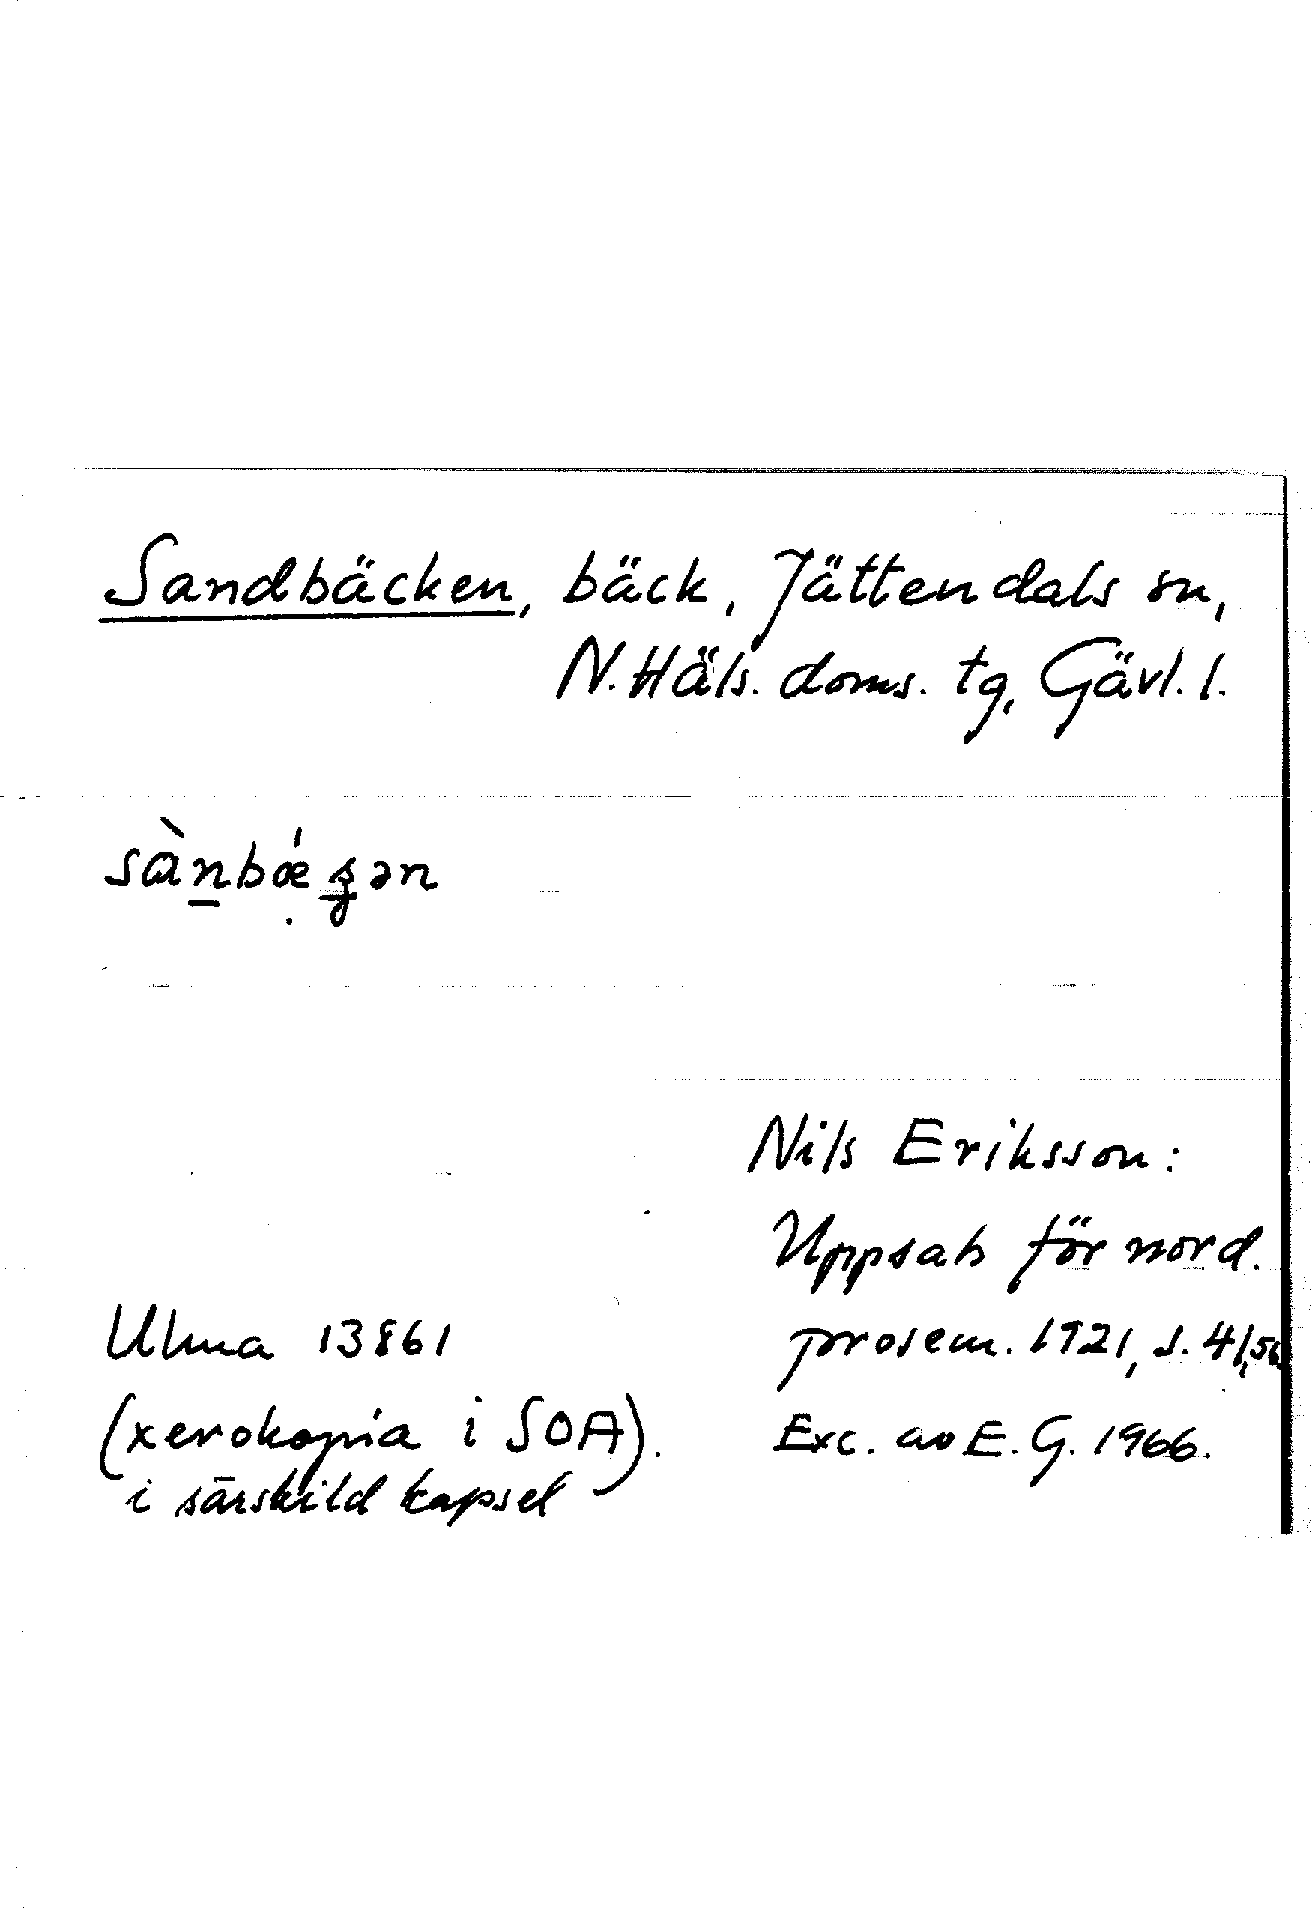 Sandbäcken, bäck, Jättendals sn,
N. Häls. doms. tg, Gävl. l.
sànbǽ̣gən
Nils Eriksson:
Uppsats för nord.
prosem. 1921, s. 41, 56
Ulma 13861
(xerokopia i SOA).
i särskild kapsel
Exc. av E. G. 1966.